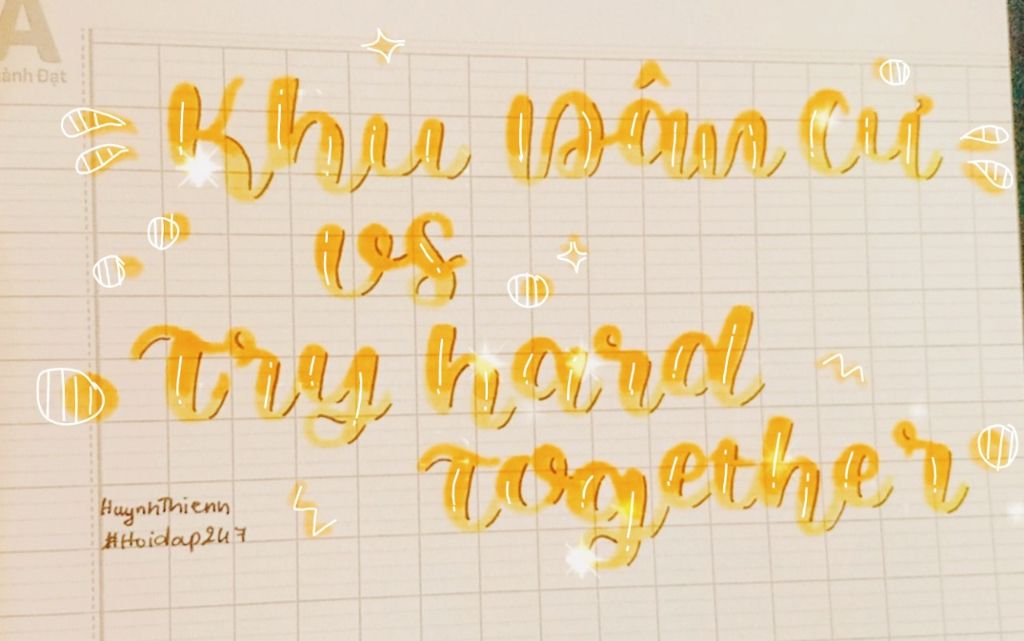 A
ành Đạt
Khu Dân Cư
vs
Try hard
together
HuynhThienn
#Hoidap247